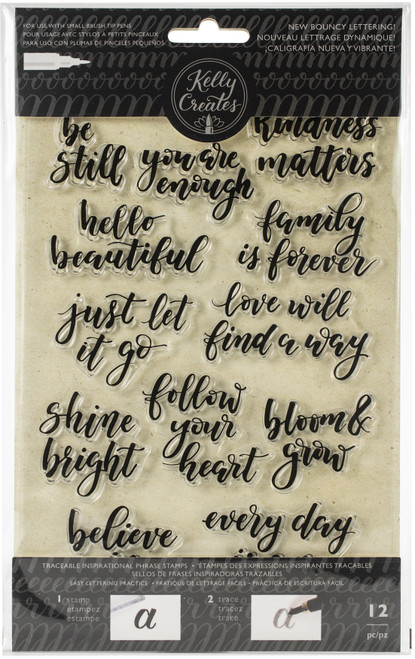 FOR USE WITH SMALL BRUSH TIP PENS
POUR USAGE AVEC STYLOS A PETITS PINCEAUX
PARA USO CON PLUMAS DE PINCELES PEQUEÑOS
NEW BOUNCY LETTERING!
NOUVEAU LETTRAGE DYNAMIQUE!
¡CALIGRAFÍA NUEVA Y VIBRANTE!
Kelly
Creates
be
still
you are
enough
kindness
matters
hello
beautiful
family
is forever
just let
it go
love will
find a way
shine
bright
follow
your
heart
bloom &
grow
believe
every day
TRACEABLE INSPIRATIONAL PHRASE STAMPS • ÉTAMPES DES EXPRESSIONS INSPIRANTES TRAÇABLES
SELLOS DE FRASES INSPIRADORAS TRAZABLES
EASY LETTERING PRACTICE • PRATIQUE DE LETTRAGE FACILE • PRÁCTICA DE ESCRITURA FÁCIL
1 stamp
étampez
estampe
a
2 trace
tracez
trace
a
12
pc/pz